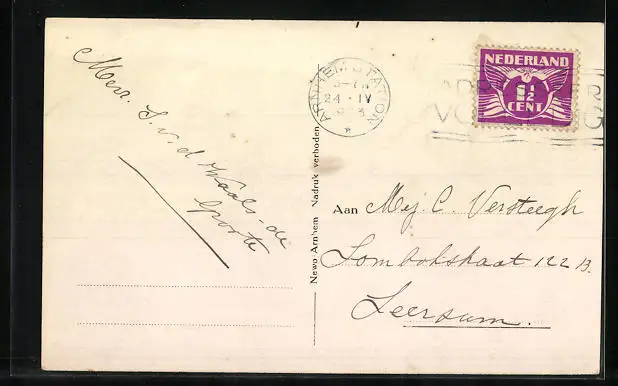 Mevr. S. v. d. Waals, de
Groote
ARNHEM STATION
24 · IV
NEDERLAND
1½
CENT
Newo-Arnhem Nadruk verboden
Aan Mej. C. Versteegh
Lombokstraat 122 B.
Leersum.